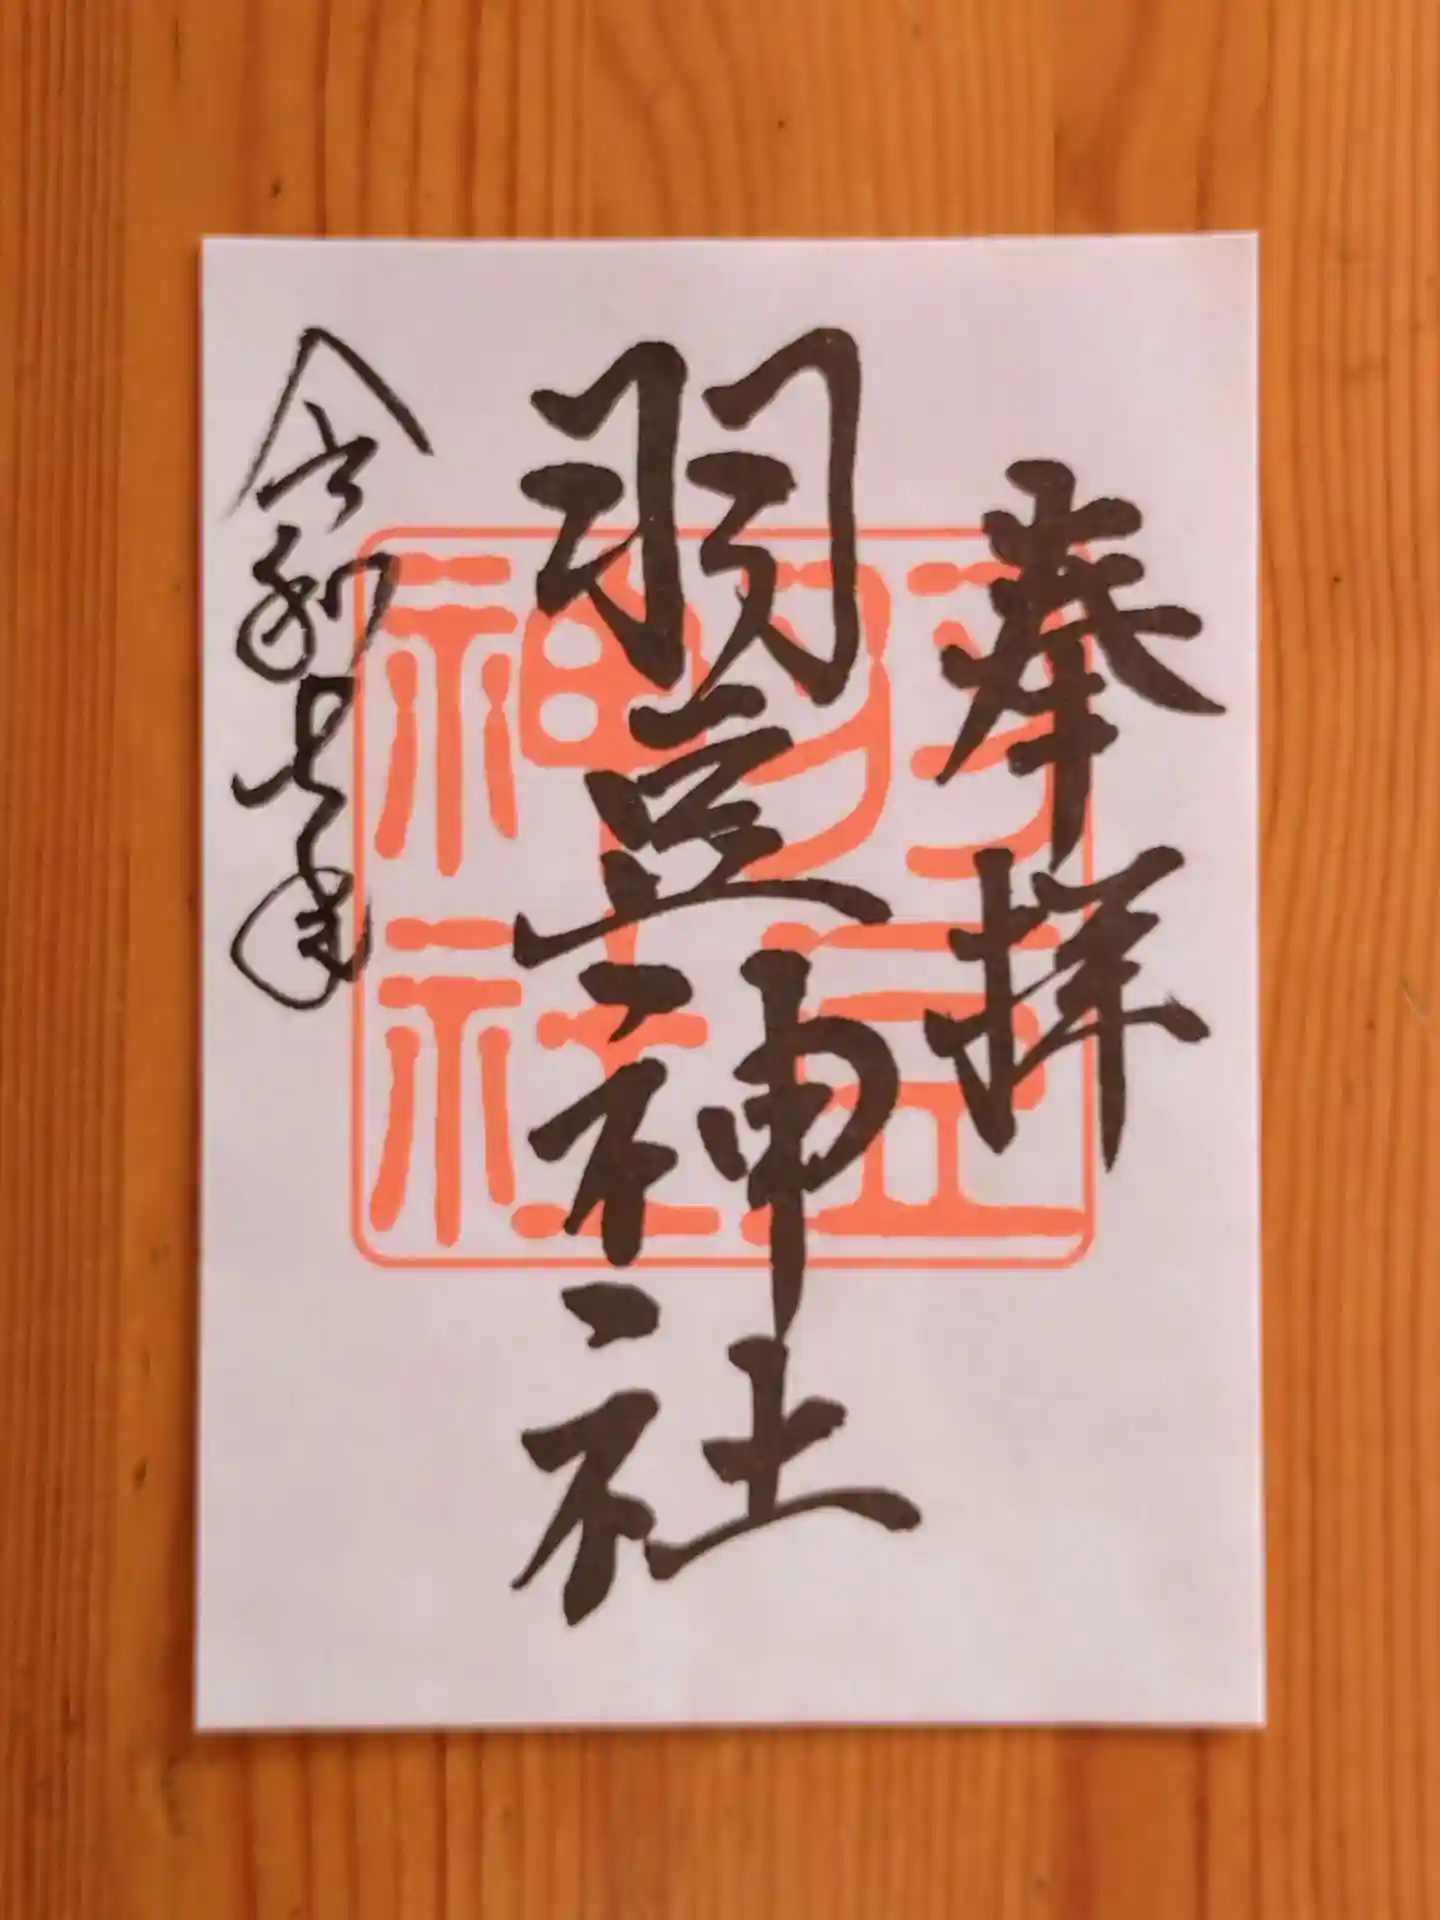 奉拝
羽豆神社
羽豆
神社
令和 年